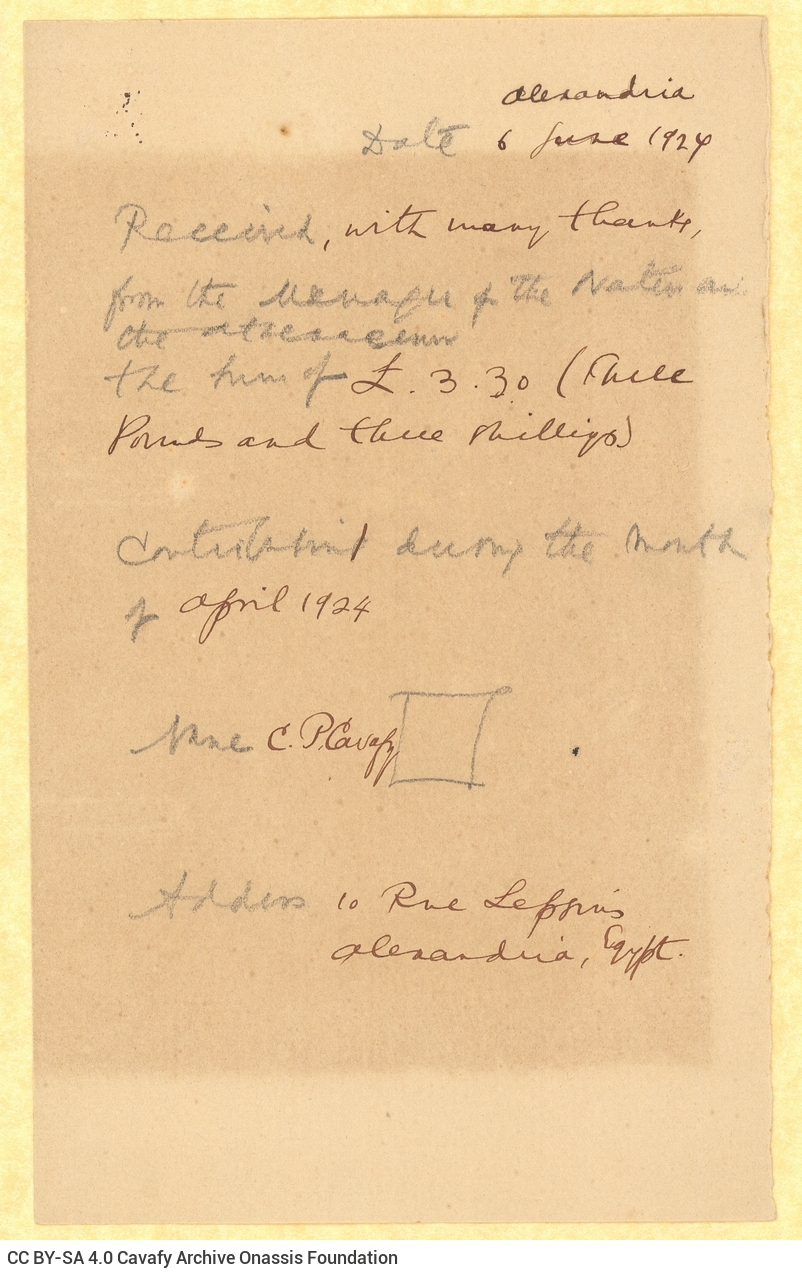 Alexandria
Date 6 June 1924
Received, with many thanks,
from the Manager of the Nation and
the Athenaeum
the sum of £. 3.30 (Three
Pounds and three shillings)
Contributions during the month
of April 1924
Name C. P. Cavafy
Address 10 Rue Lepsius
Alexandria, Egypt.
CC BY-SA 4.0 Cavafy Archive Onassis Foundation